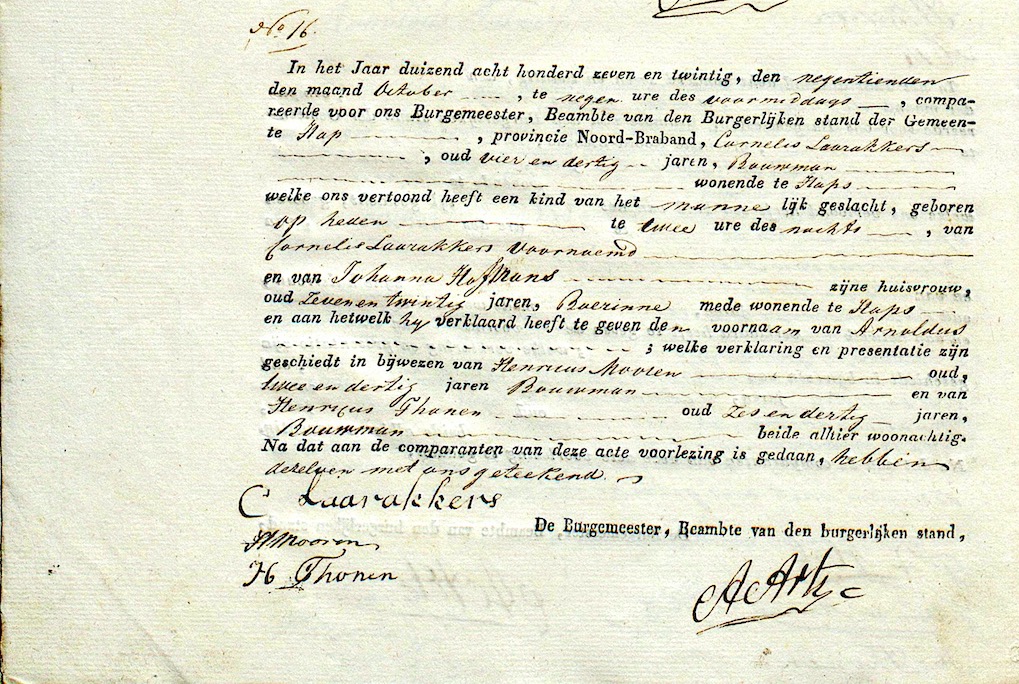 No 16.
In het Jaar duizend acht honderd zeven en twintig, den negentienden
den maand October , te negen ure des voormiddags , compa-
reerde voor ons Burgemeester, Beambte van den Burgerlijken stand der Gemeen-
te Hap , provincie Noord-Braband, Cornelis Laarakkers
, oud vier en dertig jaren, Bouwman
wonende te Haps
welke ons vertoond heeft een kind van het manne lijk geslacht, geboren
op heden te twee ure des nachts , van
Cornelis Laarakkers voornoemd
en van Johanna Hofmans zijne huisvrouw,
oud Zeven en twintig jaren, Boerinne mede wonende te Haps
en aan hetwelk hy verklaard heeft te geven den voornaam van Arnoldus
; welke verklaring en presentatie zijn
geschiedt in bijwezen van Henricus Mooren oud,
twee en dertig jaren Bouwman en van
Henricus Thonen oud Zes en dertig jaren,
Bouwman beide alhier woonachtig.
Na dat aan de comparanten van deze acte voorlezing is gedaan, hebben
dezelven met ons geteekend.
C Laarakkers
De Burgemeester, Beambte van den burgerlijken stand,
H Mooren
H Thonen